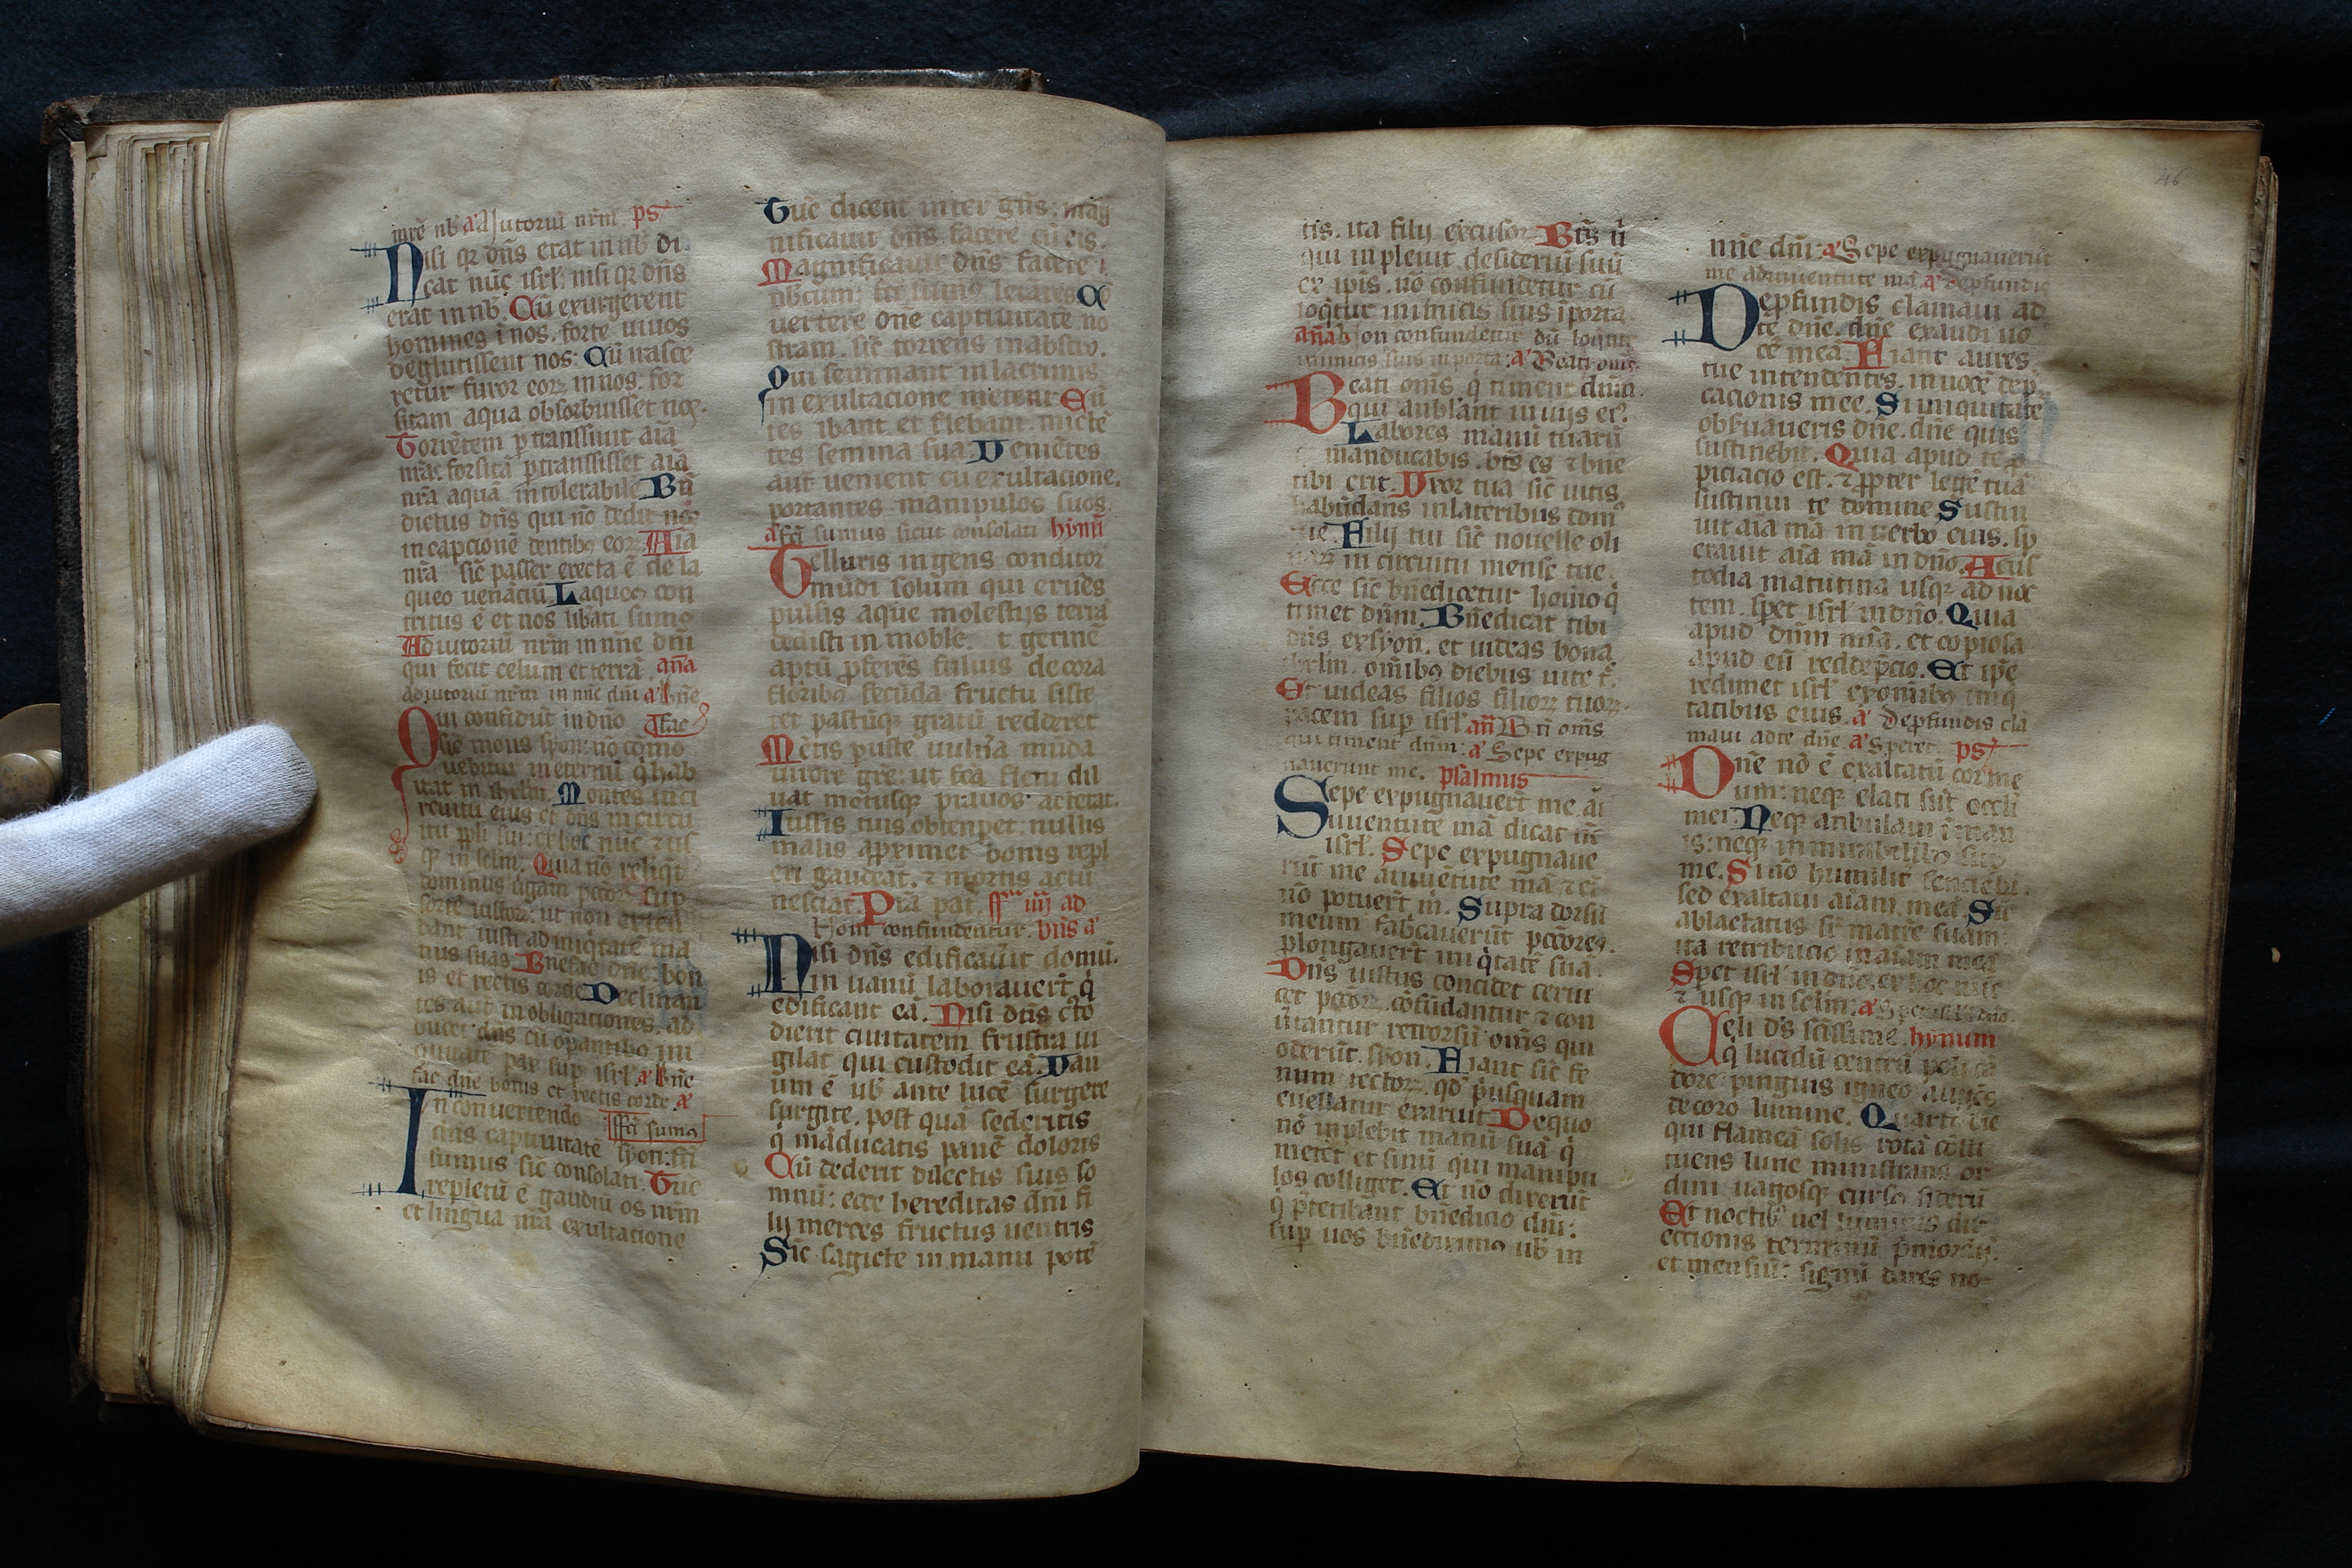 nire nb a Adiutoriū nrm̄ ps
Nisi qꝛ dn̄s erat in nb̄ di
cat nūc isrl̄: nisi qꝛ dn̄s
erat in nb̄. Cū exurgerent
homines ī nos. forte uiuos
deglutissent nos: Cū irasce
retur furor eoꝝ in nos: for
sitam aqua obsorbuisset nos.
Torrētem ꝑtranssiuit aīa
nr̄a: forsitā ꝑtranssisset aīa
nr̄a aquā intolerabilē Bn̄
dictus dn̄s qui nō dedit nos
in capcionē dentibꝰ eoꝝ Aīa
nr̄a sic̄ passer erecta ē de la
queo uenāciū. Laqueꝰ con
tritus ē et nos libāti sumꝰ
Adiutoriū nrm̄ in nn̄e dn̄i
qui fecit celum et terrā. an̄a
adiutoriū nrm̄ in nn̄e dn̄i a bn̄e
Qui confidūt in dn̄o fac
sic̄ mons syon: nō cōmo
uebitur in eternū q̄ hab
itat in ihrlm̄. Montes in ci
rcuitu eius et dn̄s in circu
itu ppl̄i sui: ex hoc nūc ⁊ us
qꝫ in sclm̄. Quia nō reliqt̄
dominus ūgam pccōꝝ sup̄
sortē iustoꝝ: ut non exten
dant iusti ad iniqtatē ma
nus suas Bn̄efac dn̄e: bon
is et rectis corde Declinan
tes aut̄ in obligationes. ad
ducet dn̄s cū opantibꝰ ini
quitatē pax sup isrl̄ a bn̄e
fac dn̄e bonis et rectis corde. a
In conuertendo fcī sumꝰ
dn̄s captiuitatē syon: fcī
sumus sic̄ consolati: Tūc
repletū ē gaudiū os nrm̄
et lingua nr̄a exultacione
Tūc dicent inter gn̄s: mag
nificauit dn̄s facere cū eis.
Magnificauit dn̄s facere
nobcum: fcī sumꝰ letātes Co
uertere dn̄e captiuitatē no
stram. sic̄ torrens in abstro.
Qui seminant in lacrimis
in exultacione metent Eū
tes ibant et flebant. mictē
tes semina sua: Veniētes
aut̄ uenient cū exultacione.
portantes manipulos suos.
a fcī sumus sicut consolati hymū
Telluris ingens conditor
mūdi solum qui eruēs
pulsis aque molestijs terrā
dedisti inmoble. t germē
aptū ꝓferēs fuluis decora
floribꝰ fecūda fructu siste
ret pastūqꝫ gratū redderet
Mētis ꝑuste uuln̄a mūda
uirore gr̄e: ut fcā fletu dil
uat motusqꝫ prauos atterat.
Iussis tuis obtenꝑet: nullis
malis aꝓximet bonis repl
eri gaudeat. ⁊ mortis actū
nesciat. Pr̄a pat̄. ff̄ iiij ad
Non confundentur. vīis a
Nisi dn̄s edificau̅it domū.
in uanū laborauer̄t q̄
edificant eā. Nisi dn̄s c̄to
dierit ciuitatem frustra ui
gilat qui custodit eā. Van
um ē ub̄ ante lucē surgere
surgite. post quā sederitis
q̄ māducatis panē doloris
Cū dederit dilectis suis so
mnū: ecce hereditas dn̄i fi
lij merces fructus uentris
Sic̄ sagicte in manu potē
tis. ita filij excusoꝝ. Btꝫ ū
qui inpleuit desiderū suū
ex ipis. nō confundetur cū
loqtur inimicis suis ī porta.
an̄a Non confundetur dū loqtur
inimicis suis in porta: a Beati oms
Beati om̄s q̄ timent dn̄m.
qui anblant in uijs eiꝰ
Labores manū tuarū
manducabis. bt̄s es ⁊ bn̄e
tibi erit. Vxor tua sic̄ uitis
habūdans in lateribus domꝰ
tue. Filij tui sic̄ nouelle oli
uaꝝ in circuitu mense tue.
Ecce sic̄ bn̄edicetur homo q̄
timet dn̄m. Bn̄edicat tibi
dn̄s ex syon. et uideas bona
ihrlm. om̄ibꝰ diebus uite t̄.
Et uideas filios filioꝝ tuoꝝ.
pacem sup isrl̄ an̄ Bt̄i om̄s
qui timent dn̄m: a Sepe expug
nauerunt me. psalmus
Sepe expugnauer̄t me ā
iuuentute mā dicat nc̄
isrl̄. Sepe expugnaue
rūt me a iuuētute mā ⁊ eī
nō potuer̄t m̄. Supra dorsū
meum fabcauerūt pccōres.
ꝓlongauer̄t iniq̄tatē suā.
Dn̄s iustus concidet cerui
ces pccōꝝ. cōfūdantur ⁊ con
ūtantur retrorsū om̄s qui
oderūt. syon. Fiant sic̄ fe
num tectoꝝ. qd̄ p̄usquam
euellatur exaruit De quo
nō inplebit manū suā q̄
metet et sinū qui manipu
los colliget. Et nō dixerūt
q̄ p̄teribant bn̄edicio dn̄i:
sup̄ uos bn̄edixinꝰ ub̄ in
nn̄e dn̄i: a Sepe expugnauerūt
me adiuuentute mā. a deꝓfundis
Deꝓfundis clamaui ad
te dn̄e. dn̄e exaudi uo
cē meā. Fiant aures
tue intendentes. in uoce dep̄
cacionis mee. Si iniquitate
obseruaueris dn̄e. dn̄e quis
sustinebit. Quia apud te ꝓ
piciacio est. ⁊ ꝓpter legē tuā
sustinui te domine Sustin
uit aīa mā in uerbo eius. sp̄
erauit aīa mā in dn̄o. A cus
todia matutina usqꝫ ad noc
tem. speꝛet isrl̄ in dn̄o. Quia
apud dn̄m mīa. et copiosa
apud eū redēpcio. Et ip̄e
redimet isrl̄ ex om̄ibꝰ iniq
tatibus eius. a deꝓfundis cla
maui ad te dn̄e. a Speret. ps
Dn̄e nō ē exaltatū cor me
um: neqꝫ elati sūt occli
mei. Neqꝫ anbulaui ī man
is: neqꝫ in mirabilibꝰ sup̄
me. Si nō humilit̄ senciebā.
sed exaltaui aīam meā. Sic̄
ablactatus sr̄ matre suam:
ita retribucio in aīam meā
Speꝛet isrl̄ in dn̄o. ex hoc nūc
⁊ usqꝫ in sclm̄: a Speret isrl̄ in dn̄o.
Celi ds̄ scīssime. hymum
q̄ lucidū centrū poli cā
dore: pinguis igneo augēs
decoro lumine. Quarti die
qui flameā solis rotā cōsti
tuens lune ministrans or
dini uagosqꝫ cursꝰ siderū
Et noctibꝰ uel luminis dir
eccionis terminū p̄moridij.
et mensiū: signū dares no